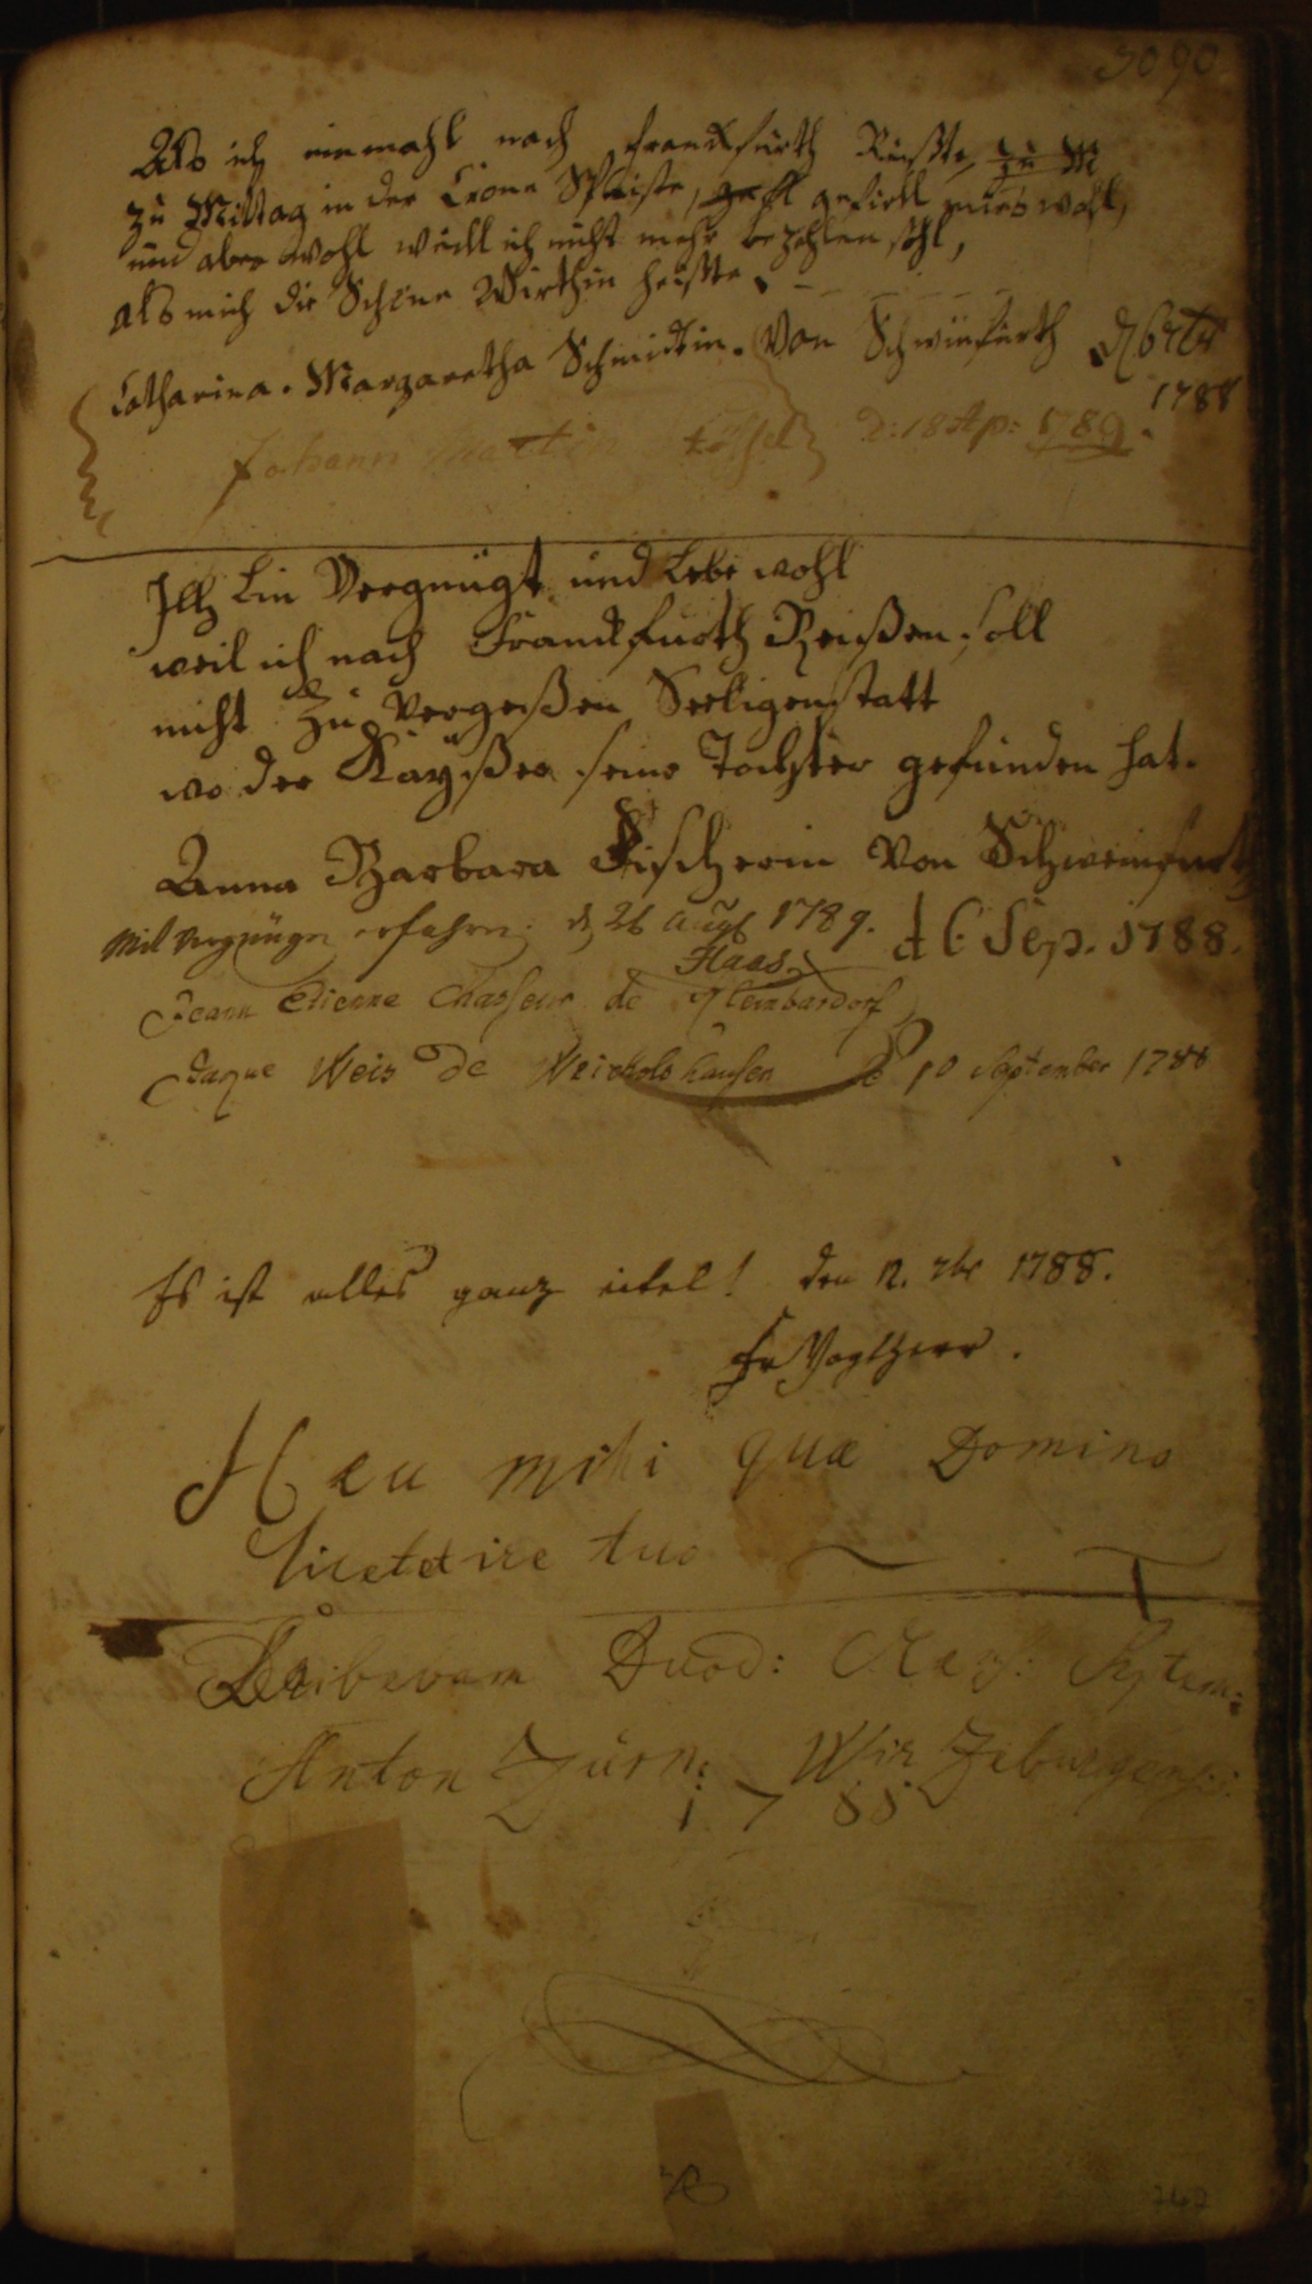 3090
Als ich einmahl nach Franckfurth Reißte, zu M
zu Mittag in der Crone Speiste, gefiell mirs wohl,
und aber wohl weill ich nicht mehr bezahlen sohl,
als mich die Schöne Wirthin heißte.
Catharina. Margaretha Schmidtin. Von Schweinfurth
1788
Johann Martin D: 18 Ap: 1789.
Ich bin Vergnügt und Lebe wohl
weil ich nach Franckfurth Reißen soll
nicht zu Vergeßen Seeligenstatt
wo der Kayßer seine Tochter gefunden hat.
Anna Barbara Fischerin Von Schweinfurth
d 6 Sep. 1788.
Mit Vergnügen erfahren d 26 Augt 1789.
Haas
Jean Etienne Chasseur de Kleinbardorf
Jaque Weis de Weicholshausen d 10 September 1788
Es ist alles ganz eitel! den 12. 7br 1788.
Fr Vogtherr.
Heu mihi quæ Domino
licet et ire tuo
Scribebam Duod: Septem:
Anton Zürn: Wirzeburgensis
1788
242